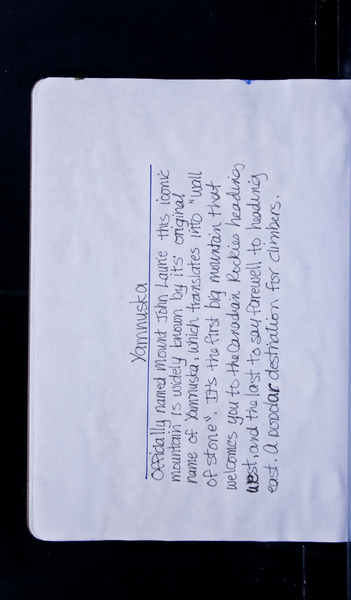 Yamnuska
Officially named Mount John Laurie this iconic
mountain is widely known by its' original
name of Yamnuska, which translates into "wall
of stone". It's the first big mountain that
welcomes you to the Canadian Rockies heading
west, and the last to say farewell to heading
east. A popular destination for climbers.